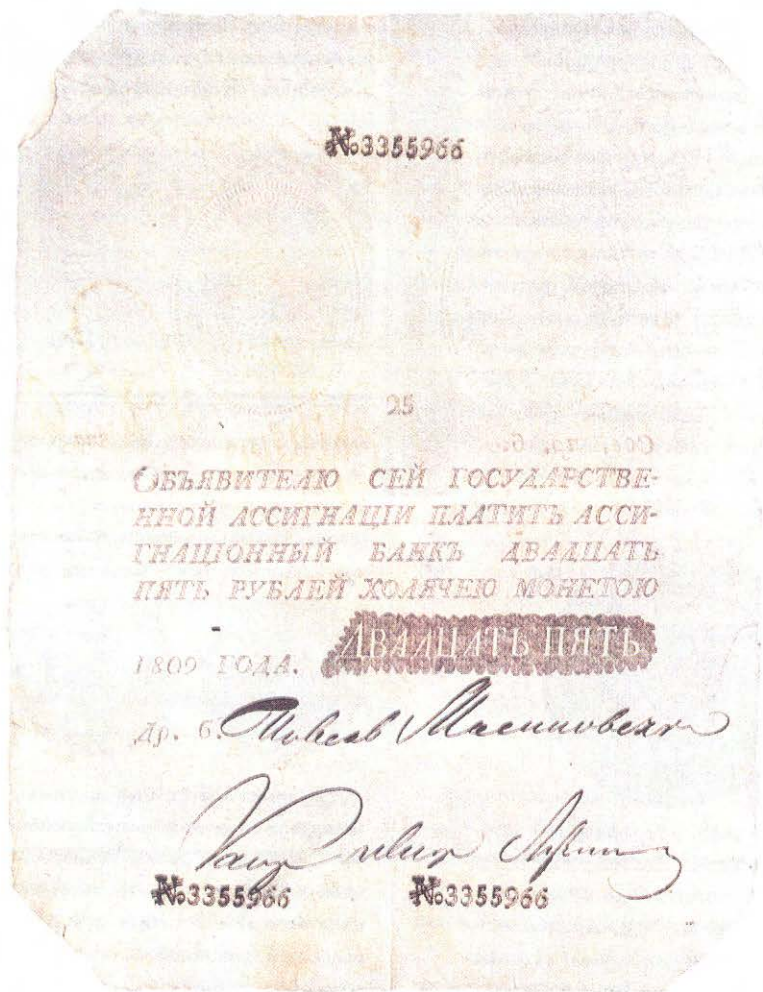 №3355966
25
ОБЪЯВИТЕЛЮ СЕЙ ГОСУДАРСТВЕ-
ННОЙ АССИГНАЦІИ ПЛАТИТЪ АССИ-
ГНАЦІОННЫЙ БАНКЪ ДВАДЦАТЬ
ПЯТЬ РУБЛЕЙ ХОДЯЧЕЮ МОНЕТОЮ
1809 ГОДА. ДВАДЦАТЬ ПЯТЬ
Др. б.
№3355966 №3355966